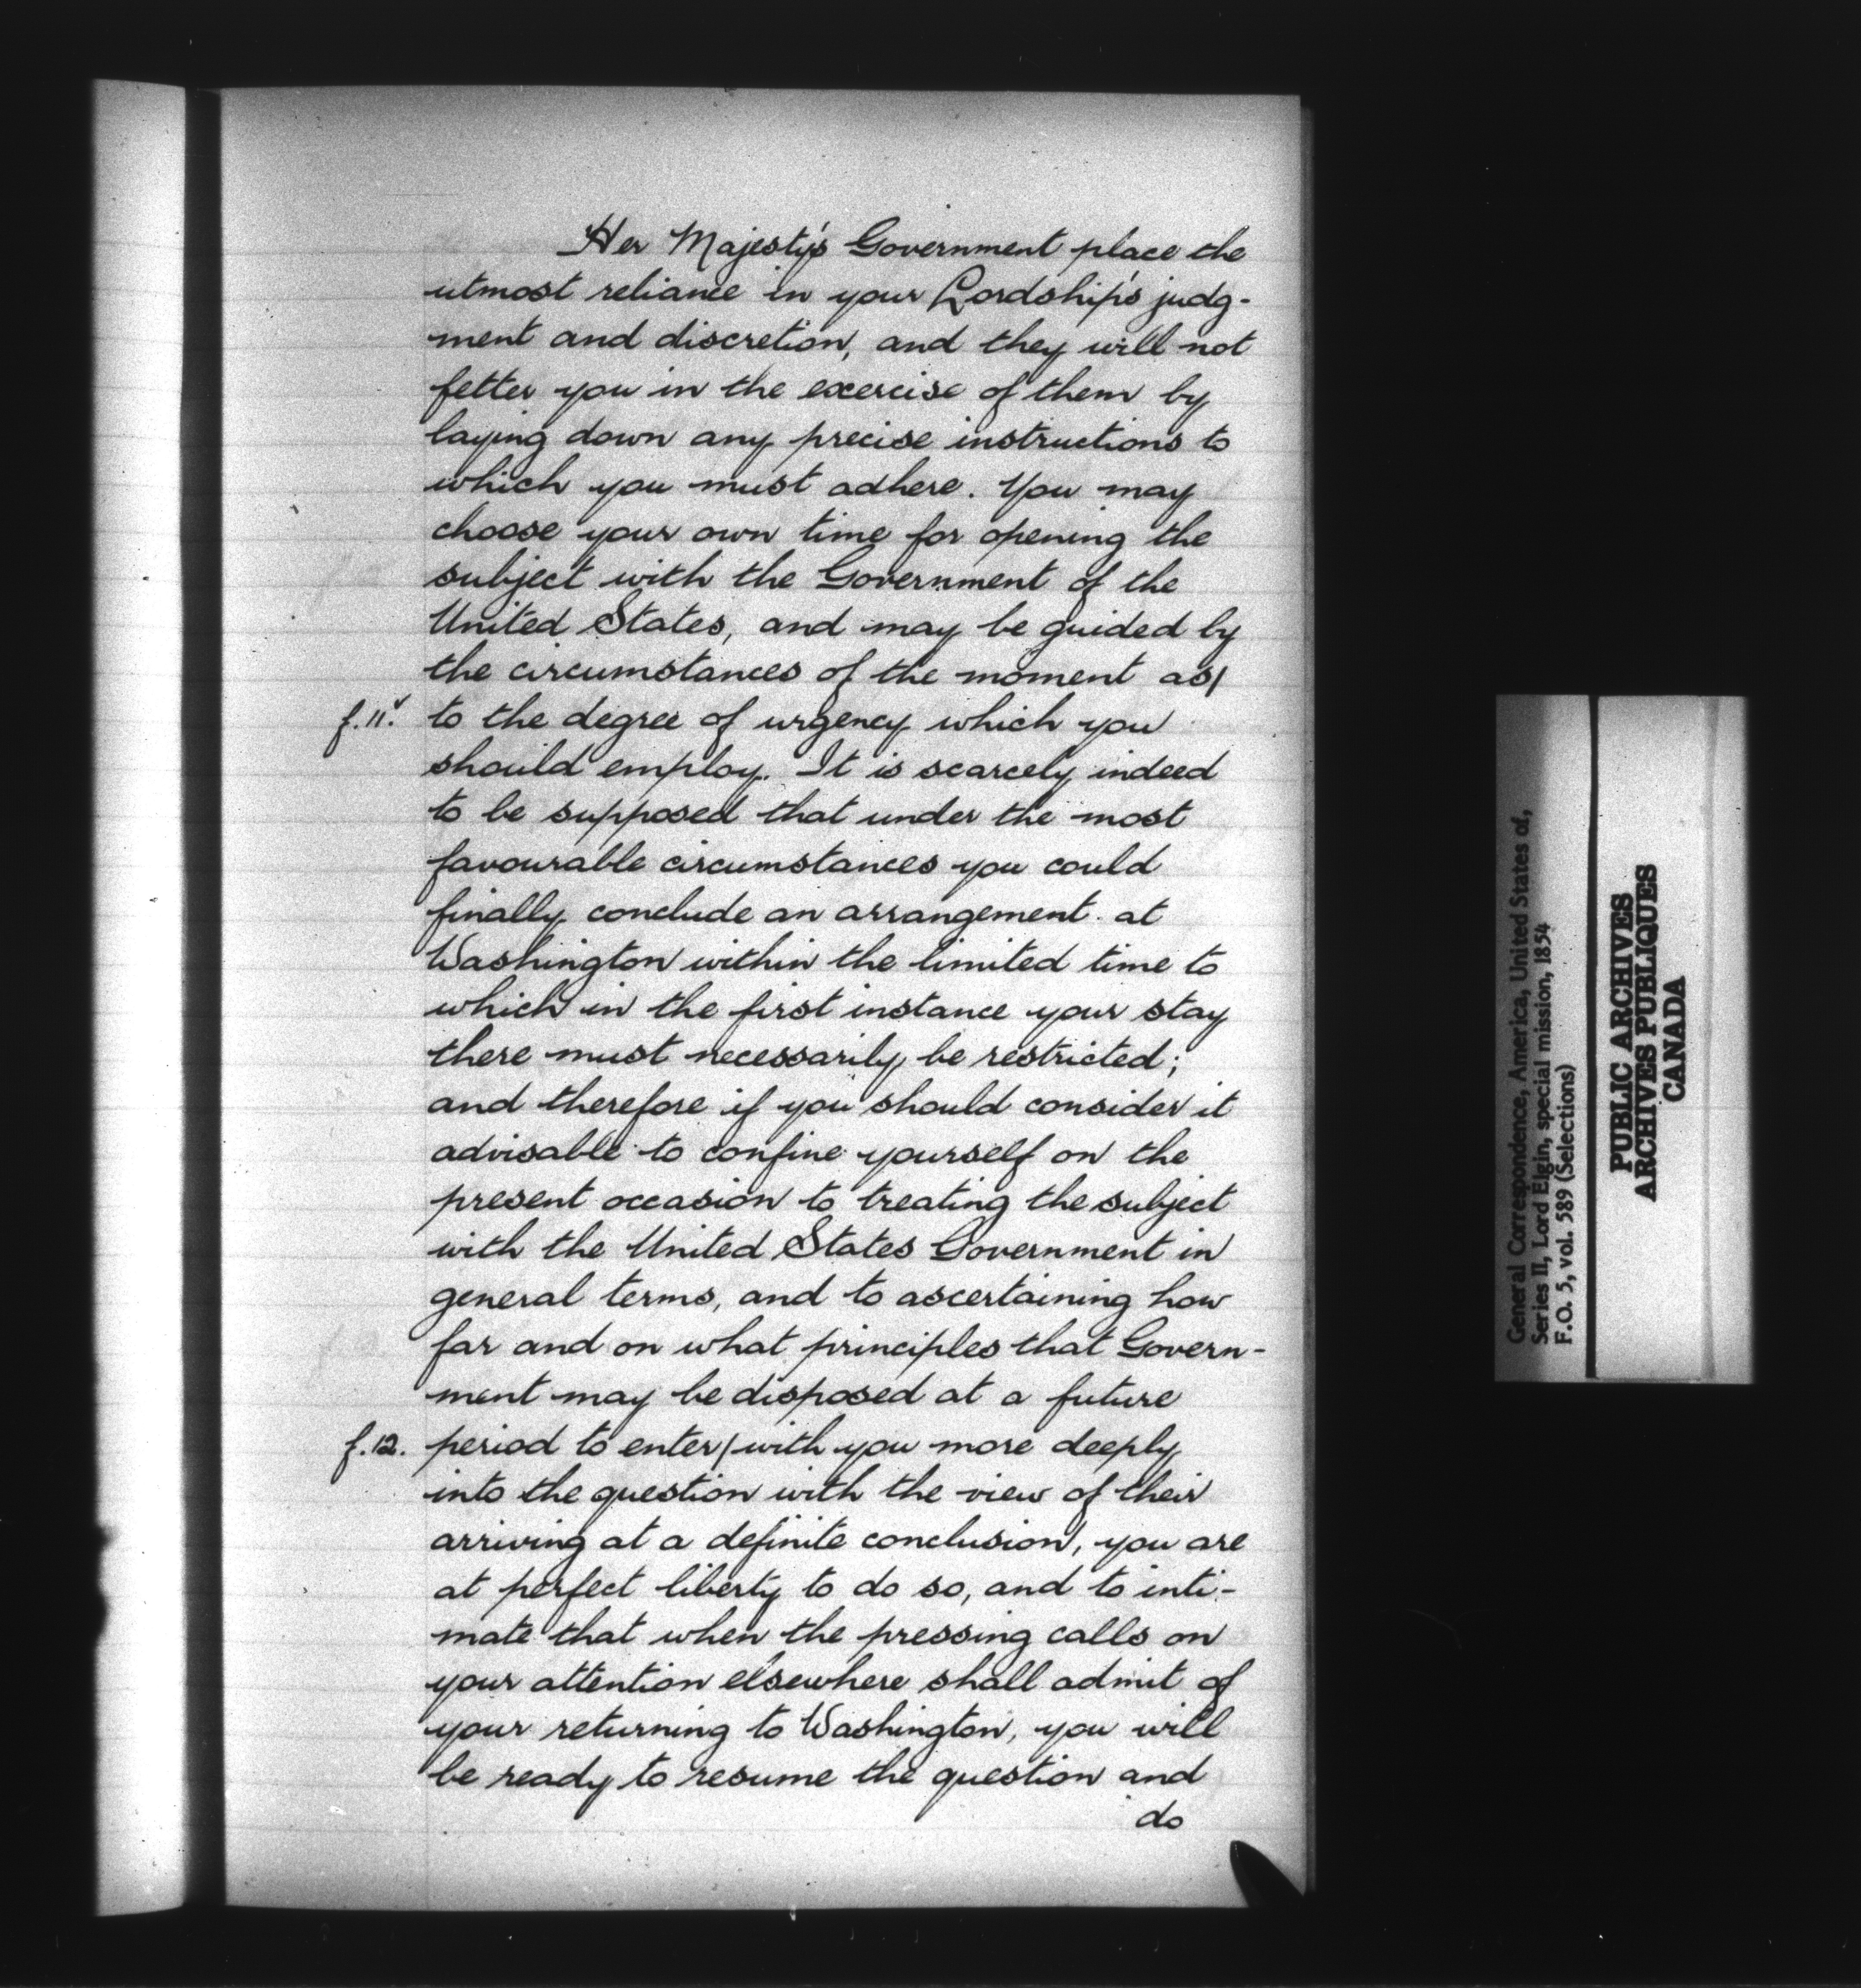 Her Majesty's Government place the
utmost reliance in your Lordship's judg-
ment and discretion, and they will not
fetter you in the exercise of them by
laying down any precise instructions to
which you must adhere. You may
choose your own time for opening the
subject with the Government of the
United States, and may be guided by
the circumstances of the moment as/
f.11v. to the degree of urgency which you
should employ. It is scarcely indeed
to be supposed that under the most
favourable circumstances you could
finally conclude an arrangement at
Washington within the limited time to
which in the first instance your stay
there must necessarily be restricted;
and therefore if you should consider it
advisable to confine yourself on the
present occasion to treating the subject
with the United States Government in
general terms, and to ascertaining how
far and on what principles that Govern-
ment may be disposed at a future
f.12. period to enter/with you more deeply
into the question with the view of their
arriving at a definite conclusion, you are
at perfect liberty to do so, and to inti-
mate that when the pressing calls on
your attention elsewhere shall admit of
your returning to Washington, you will
be ready to resume the question and
do
General Correspondence, America, United States of,
Series II, Lord Elgin, special mission, 1854
F.O. 5, vol. 589 (Selections)
PUBLIC ARCHIVES
ARCHIVES PUBLIQUES
CANADA